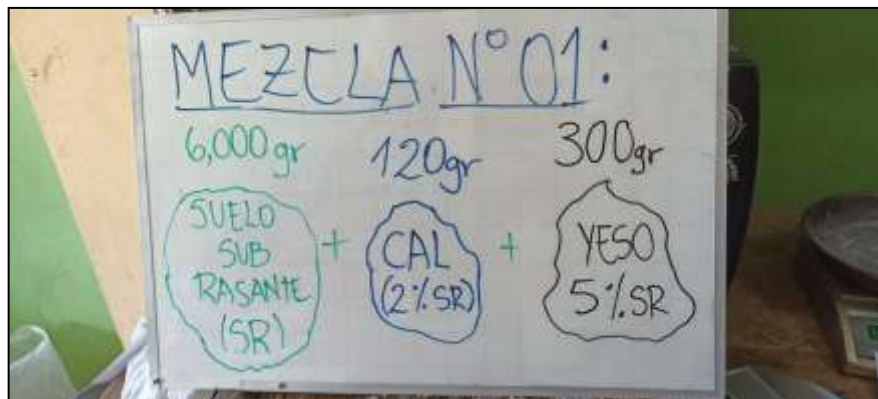 MEZCLA N° 01:
6,000 gr 120gr 300gr
SUELO
SUB
RASANTE
(SR)
+
CAL
(2%SR)
+
YESO
5%SR